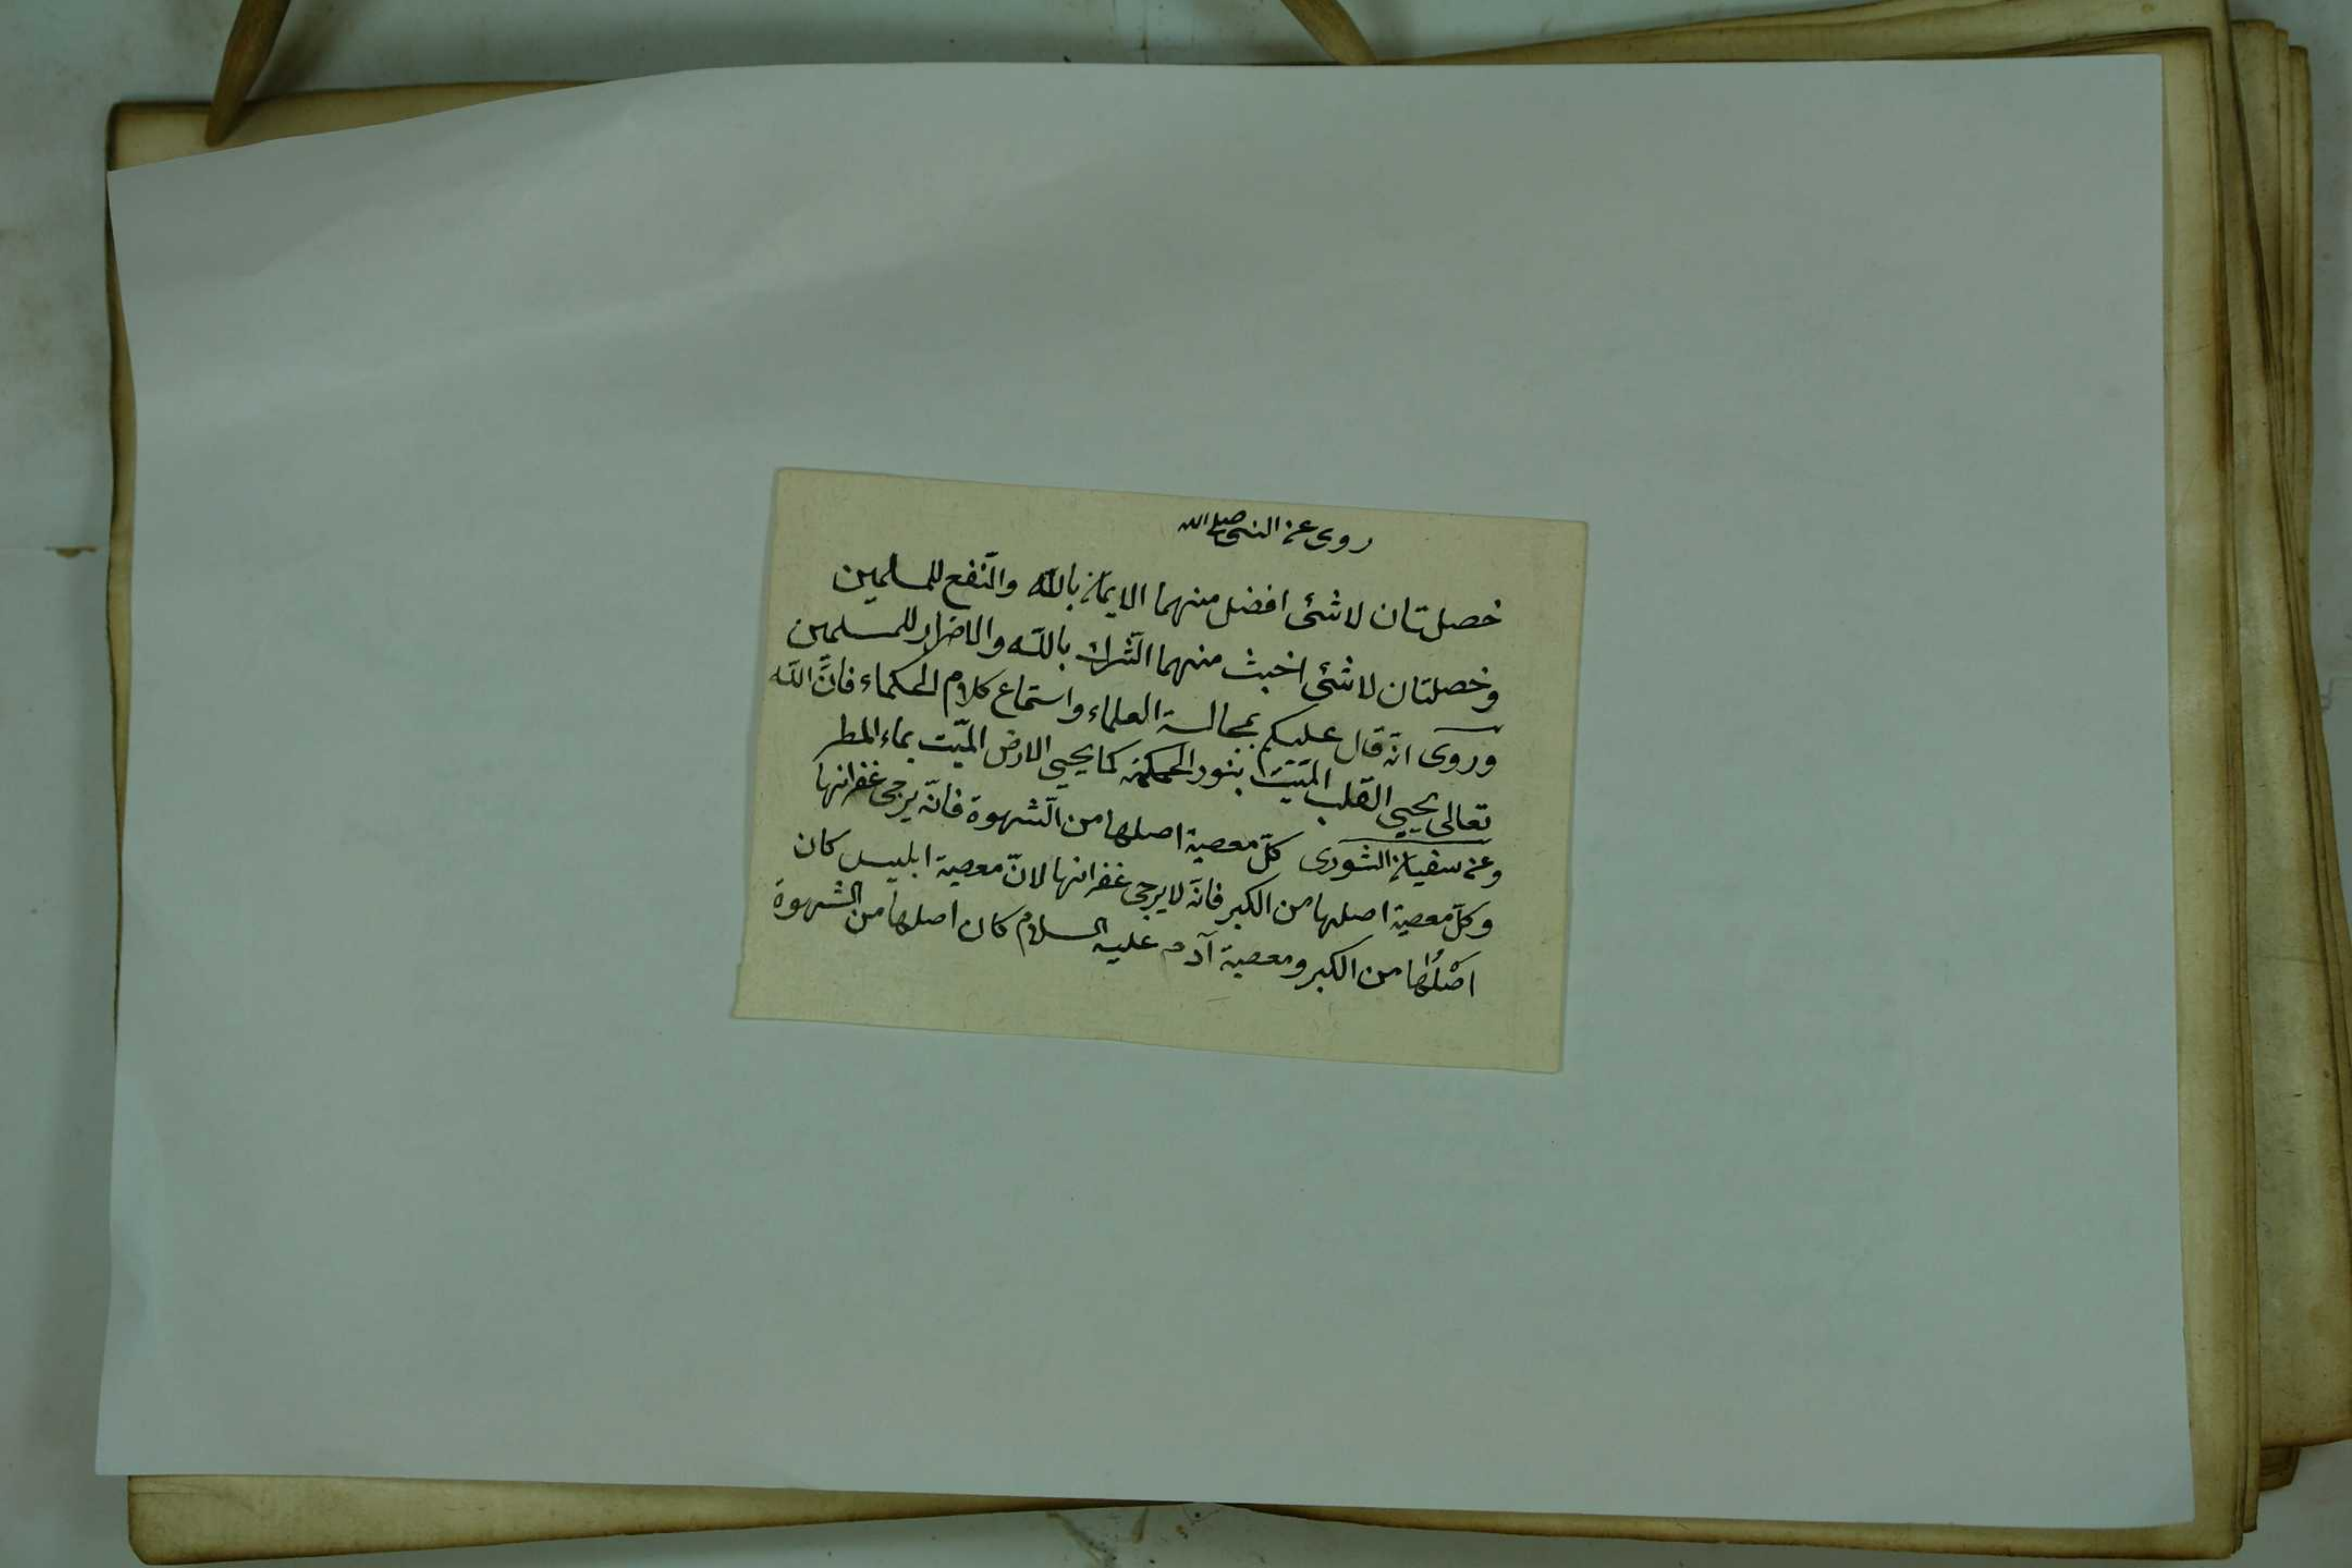 روى عن النبى صلى الله
خصلتان لا شئ افضل منهما الايمان بالله والنّفع للمسلمين
وخصلتان لا شئ اخبث منهما الشّرك بالله والاضرار للمسلمين
وروى انّه قال عليكم بمجالسة العلماء واستماع كلام الحكماء فانّ الله
تعالى يحيى القلب الميّت بنور الحكمة كما يحيى الارض الميّت بماء المطر
وعن سفيان الثورى كلّ معصية اصلها من الشّهوة فانّه يرجى غفرانها
وكلّ معصية اصلها من الكبر فانّه لا يرجى غفرانها لانّ معصية ابليس كان
اصْلُها من الكبر ومعصية آدم عليه السلام كان اصلها من الشهوة